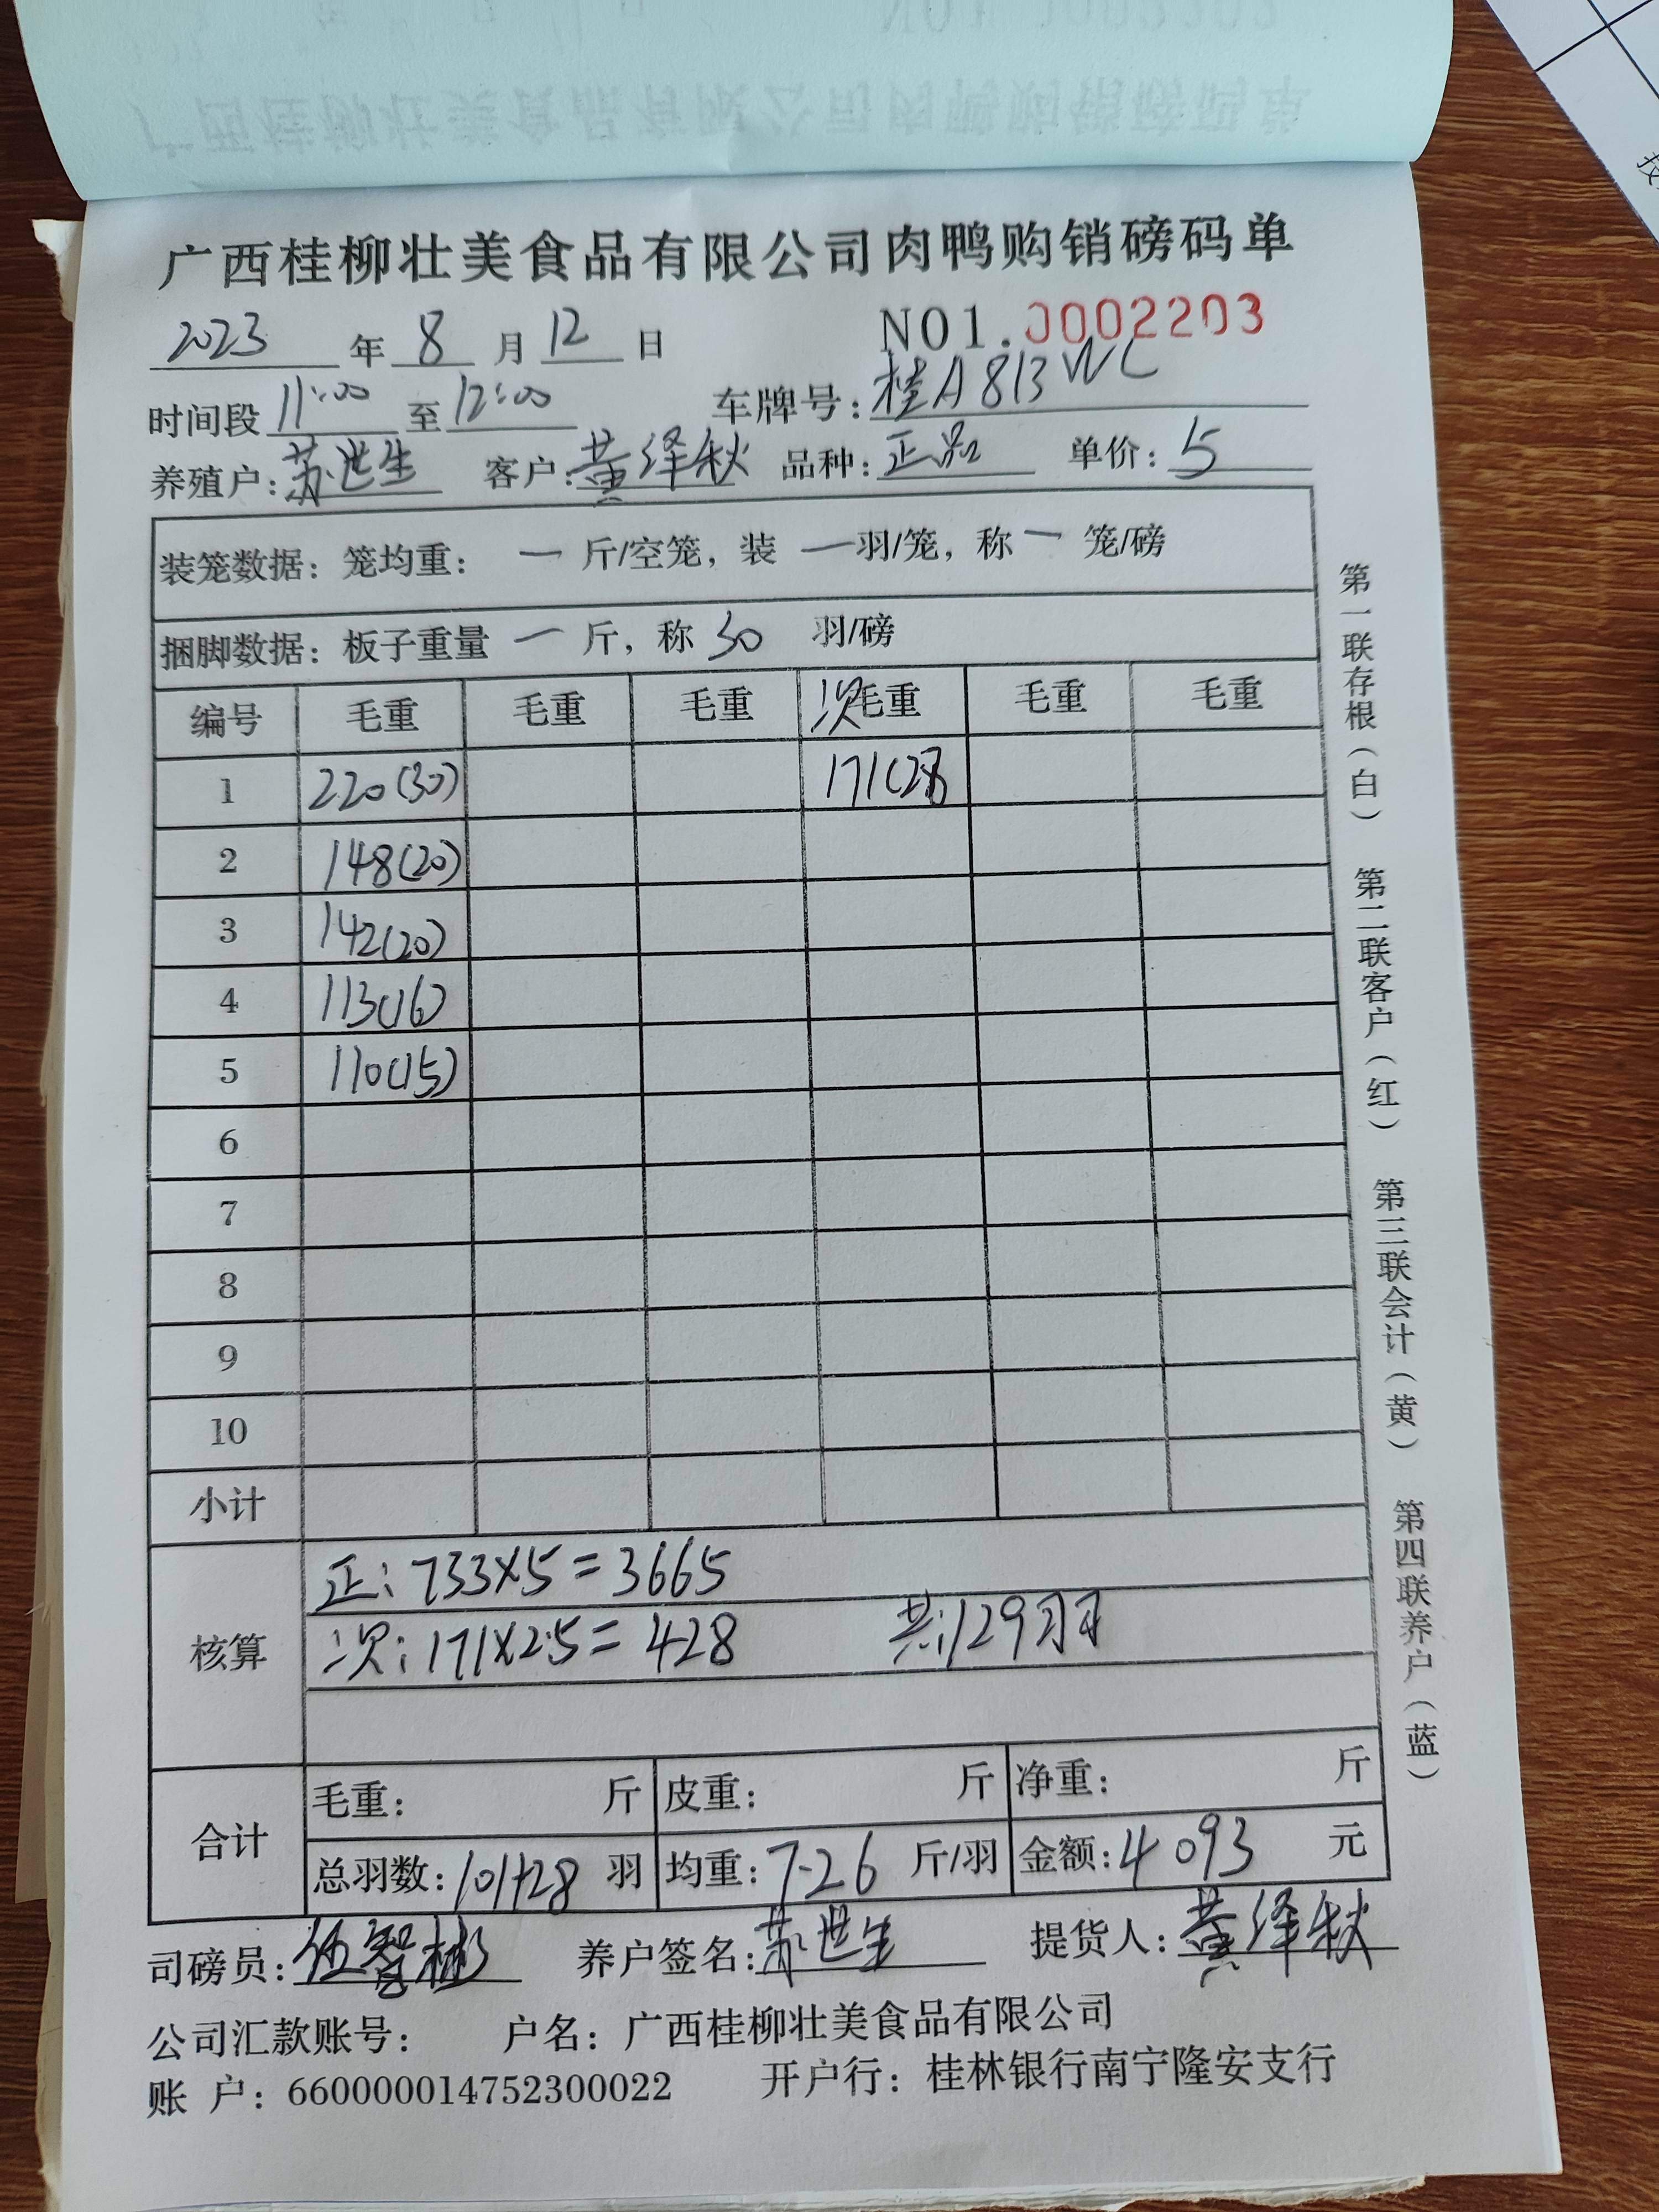 广西桂柳壮美食品有限公司肉鸭购销磅码单
2023 年 8 月 12 日 NO1.0002203
时间段 11:00 至 12:00 车牌号: 桂A813WC
养殖户: 苏世生 客户: 黄绎秋 品种: 正品 单价: 5
装笼数据: 笼均重: 一 斤/空笼, 装 一 羽/笼, 称 一 笼/磅
捆脚数据: 板子重量 一 斤, 称 30 羽/磅
编号 毛重 毛重 毛重 次毛重 毛重 毛重
1 220(30) 171(28)
2 148(20)
3 142(20)
4 113(16)
5 110(15)
6
7
8
9
10
小计
核算
正: 733×5=3665
次: 171×2.5=428 共:129羽
合计
毛重: 斤 皮重: 斤 净重: 斤
总羽数: 101+28 羽 均重: 7.26 斤/羽 金额: 4093 元
司磅员: 伍智彬 养户签名: 苏世生 提货人: 黄绎秋
公司汇款账号: 户名: 广西桂柳壮美食品有限公司
账 户: 660000014752300022 开户行: 桂林银行南宁隆安支行
第一联存根(白) 第二联客户(红) 第三联会计(黄) 第四联养户(蓝)